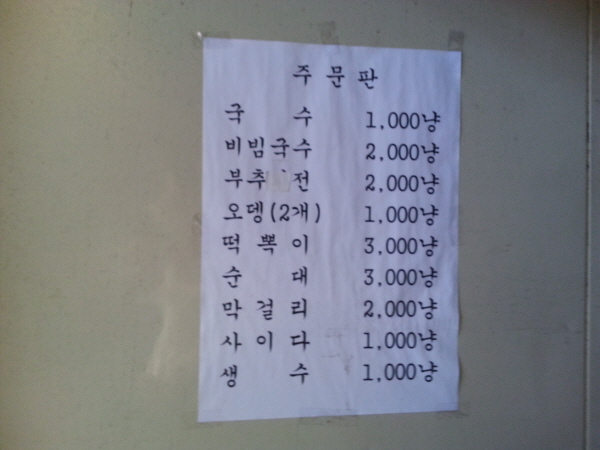 주 문 판
국 수 1,000냥
비빔국수 2,000냥
부추 전 2,000냥
오뎅(2개) 1,000냥
떡 뽁 이 3,000냥
순 대 3,000냥
막 걸 리 2,000냥
사 이 다 1,000냥
생 수 1,000냥